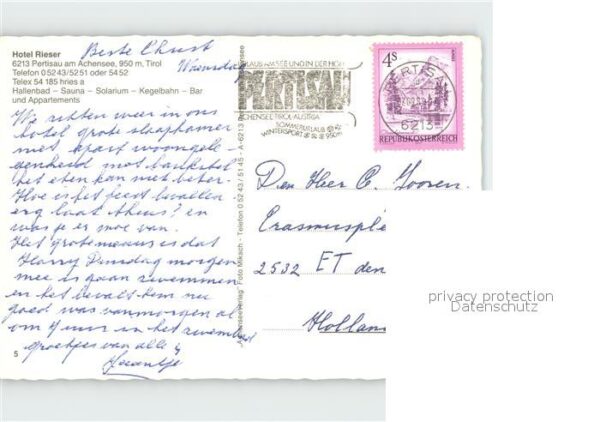 Hotel Rieser
6213 Pertisau am Achensee, 950 m, Tirol
Telefon 0 52 43/52 51 oder 54 52
Telex 54 185 hries a
Hallenbad – Sauna – Solarium – Kegelbahn – Bar
und Appartements
Beste Chust
Woensdag
We zitten weer in ons
hotel grote slaapkamer
met apart woongele-
genheid met bankstel
het eten kan niet beter.
Hoe is het feest bevallen
erg laat thuis? en
was je er moe van.
Het grote nieuws is dat
Harry Dinsdag morgen
mee is gaan zwemmen
en het bevalt hem nu
goed was vanmorgen al
om 7 uur in het zwembad
groetjes van alle 4
5
Achenseeverlag Foto Miksch - Telefon 0 52 43/51 45 - A-6213 Pertisau am Achensee
URLAUB AM SEE UND IN DER HÖHE
PERTISAU
ACHENSEE-TIROL-AUSTRIA
SOMMERURLAUB
WINTERSPORT 950m
4 S
REPUBLIK ÖSTERREICH
PERTISAU
6213
Den Heer C.
Erasmusple
2532 ET den
Holland
privacy protection
Datenschutz